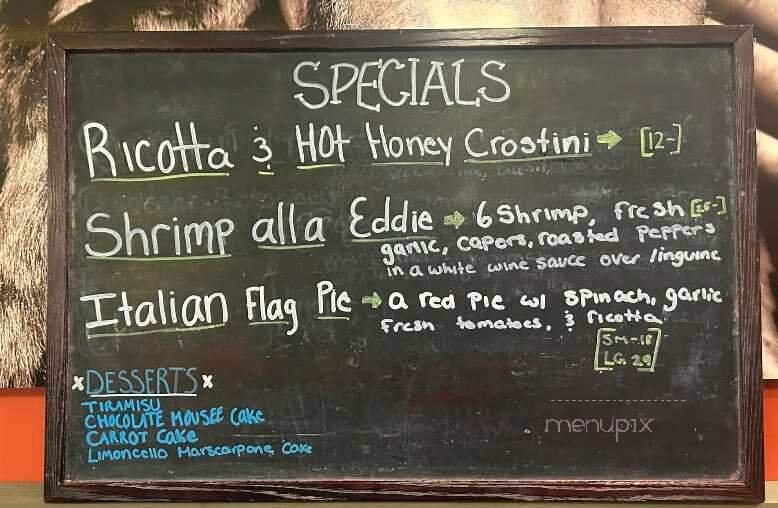 SPECIALS
Ricotta & HOt Honey Crostini → [12-]
Shrimp alla Eddie → 6 Shrimp, fresh
garlic, capers, roasted peppers
in a white wine sauce over linguine
Italian Flag Pie → a red pie w/ spinach, garlic
fresh tomatoes, & ricotta
[SM-18
LG. 29]
x DESSERTS x
TIRAMISU
CHOCOLATE MOUSEE Cake
CARROT Cake
Limoncello Marscarpone Cake
menupix